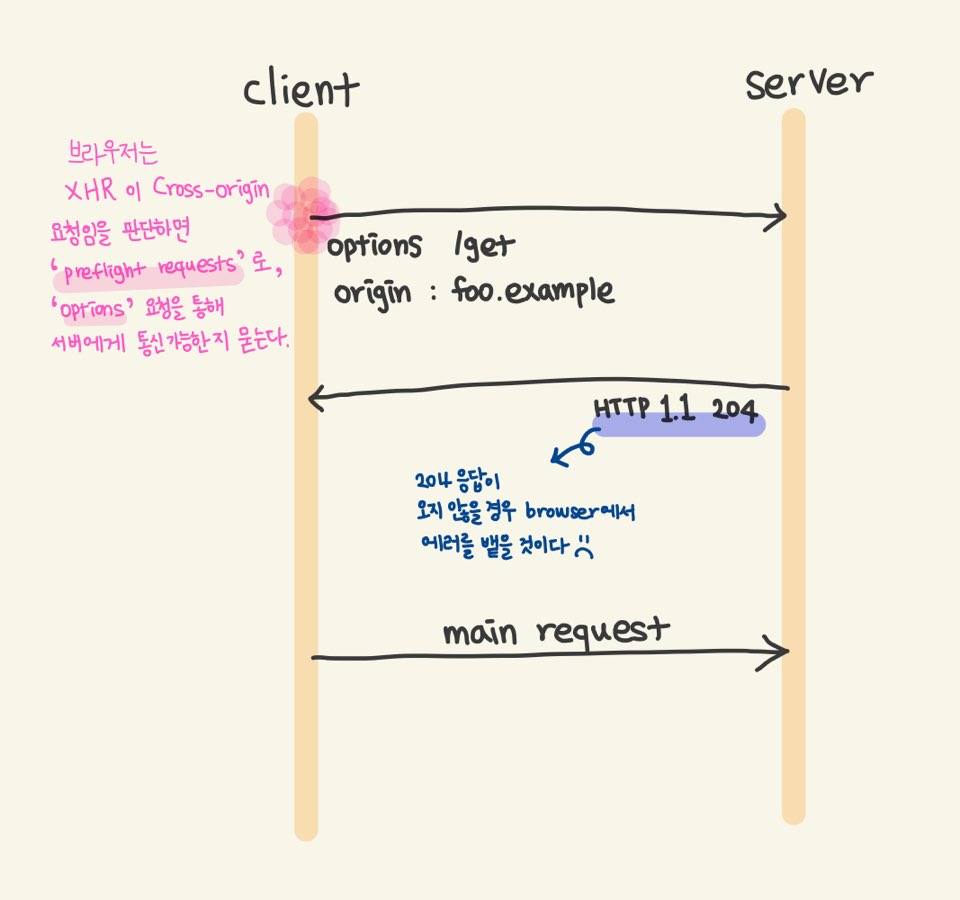 client
server
브라우저는
XHR 이 Cross-origin
요청임을 판단하면
'preflight requests'로,
'options' 요청을 통해
서버에게 통신가능한지 묻는다.
options /get
origin : foo.example
HTTP 1.1 204
204 응답이
오지 않을 경우 browser에서
에러를 뱉을 것이다
main request